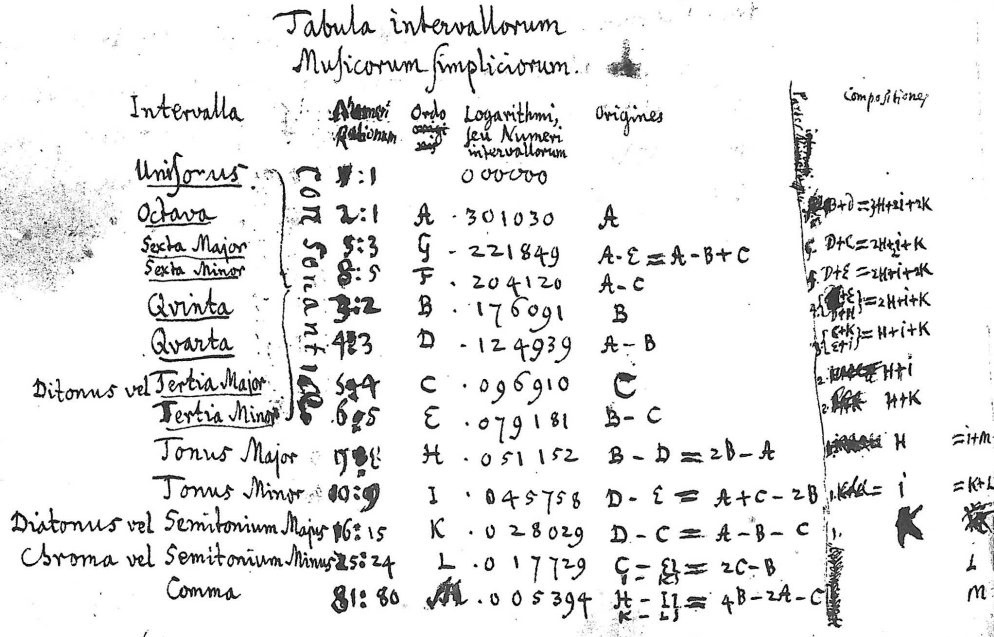 Tabula intervallorum
Musicorum simpliciorum.
Intervalla Numeri Rationum Ordo Logarithmi, seu Numeri intervallorum Origines Compositiones
Consonantiae
Unisonus 1:1 000000
Octava 2:1 A .301030 A B+D=3H+2i+2K
Sexta Major 5:3 G .221849 A-E=A-B+C D+C=2H+2i+K
Sexta Minor 8:5 F .204120 A-C D+E=2H+i+2K
Qvinta 3:2 B .176091 B =2H+i+K
Qvarta 4:3 D .124939 A-B =H+i+K
Ditonus vel Tertia Major 5:4 C .096910 C 2. H+i
Tertia Minor 6:5 E .079181 B-C 2. H+K
Tonus Major 9:8 H .051152 B-D=2B-A H =i+M
Tonus Minor 10:9 I .045758 D-E=A+C-2B i =K+L
Diatonus vel Semitonium Majus 16:15 K .028029 D-C=A-B-C 1. K
Chroma vel Semitonium Minus 25:24 L .017729 C-E=2C-B L
Comma 81:80 M .005394 H-I=4B-2A-C M
K-L